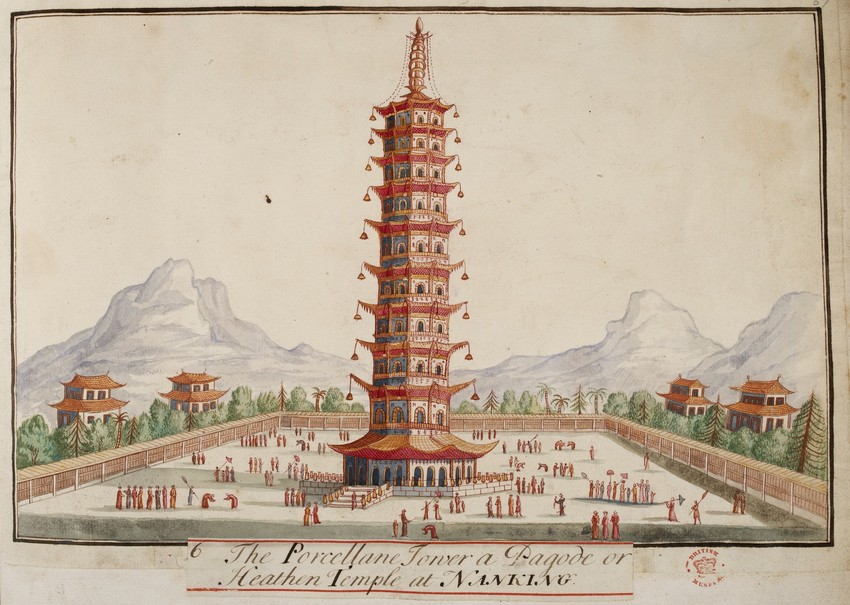 6 The Porcellane Tower a Pagode or
Heathen Temple at NANKING.
BRITISH
MUSEUM